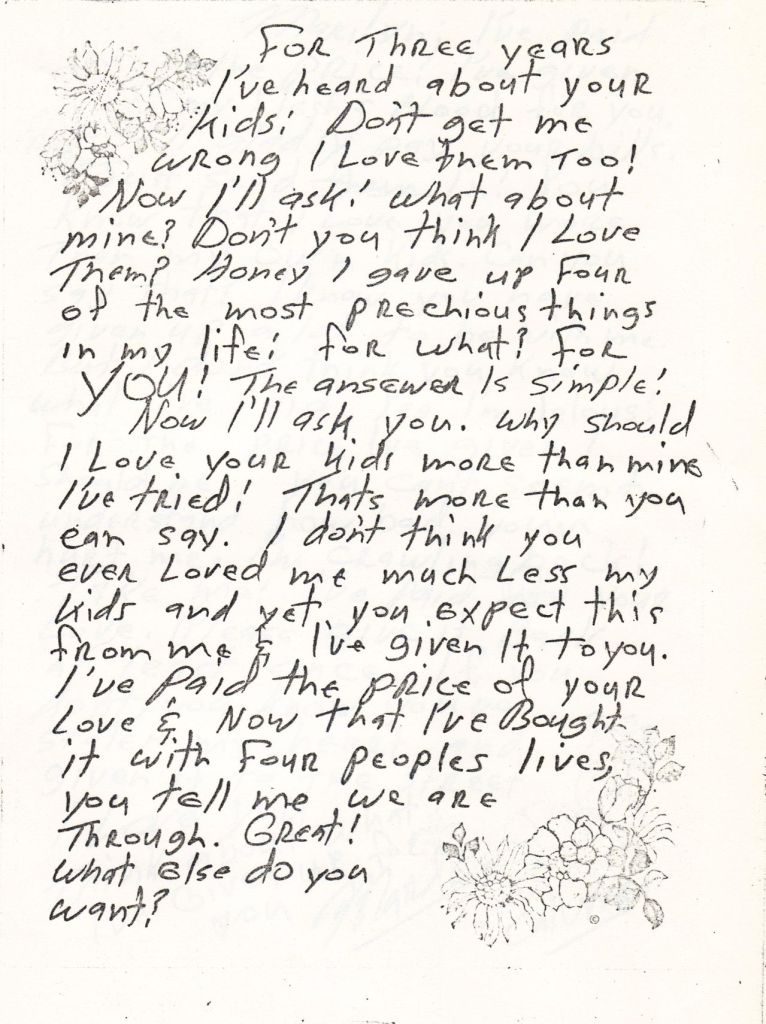 For Three years
I've heard about your
kids! Don't get me
wrong I Love them Too!
Now I'll ask! what about
mine? Don't you think I Love
Them? Honey I gave up Four
of the most prechious things
in my life! for what? For
YOU! The ansewer Is simple!
Now I'll ask you. why should
I Love your kids more than mine
I've tried! Thats more than you
can say. I don't think you
ever Loved me much Less my
kids and yet you expect this
from me & I've given It to you.
I've Paid the price of your
Love & Now that I've Bought
it with Four peoples lives,
you tell me we are
Through. Great!
what else do you
want?
©